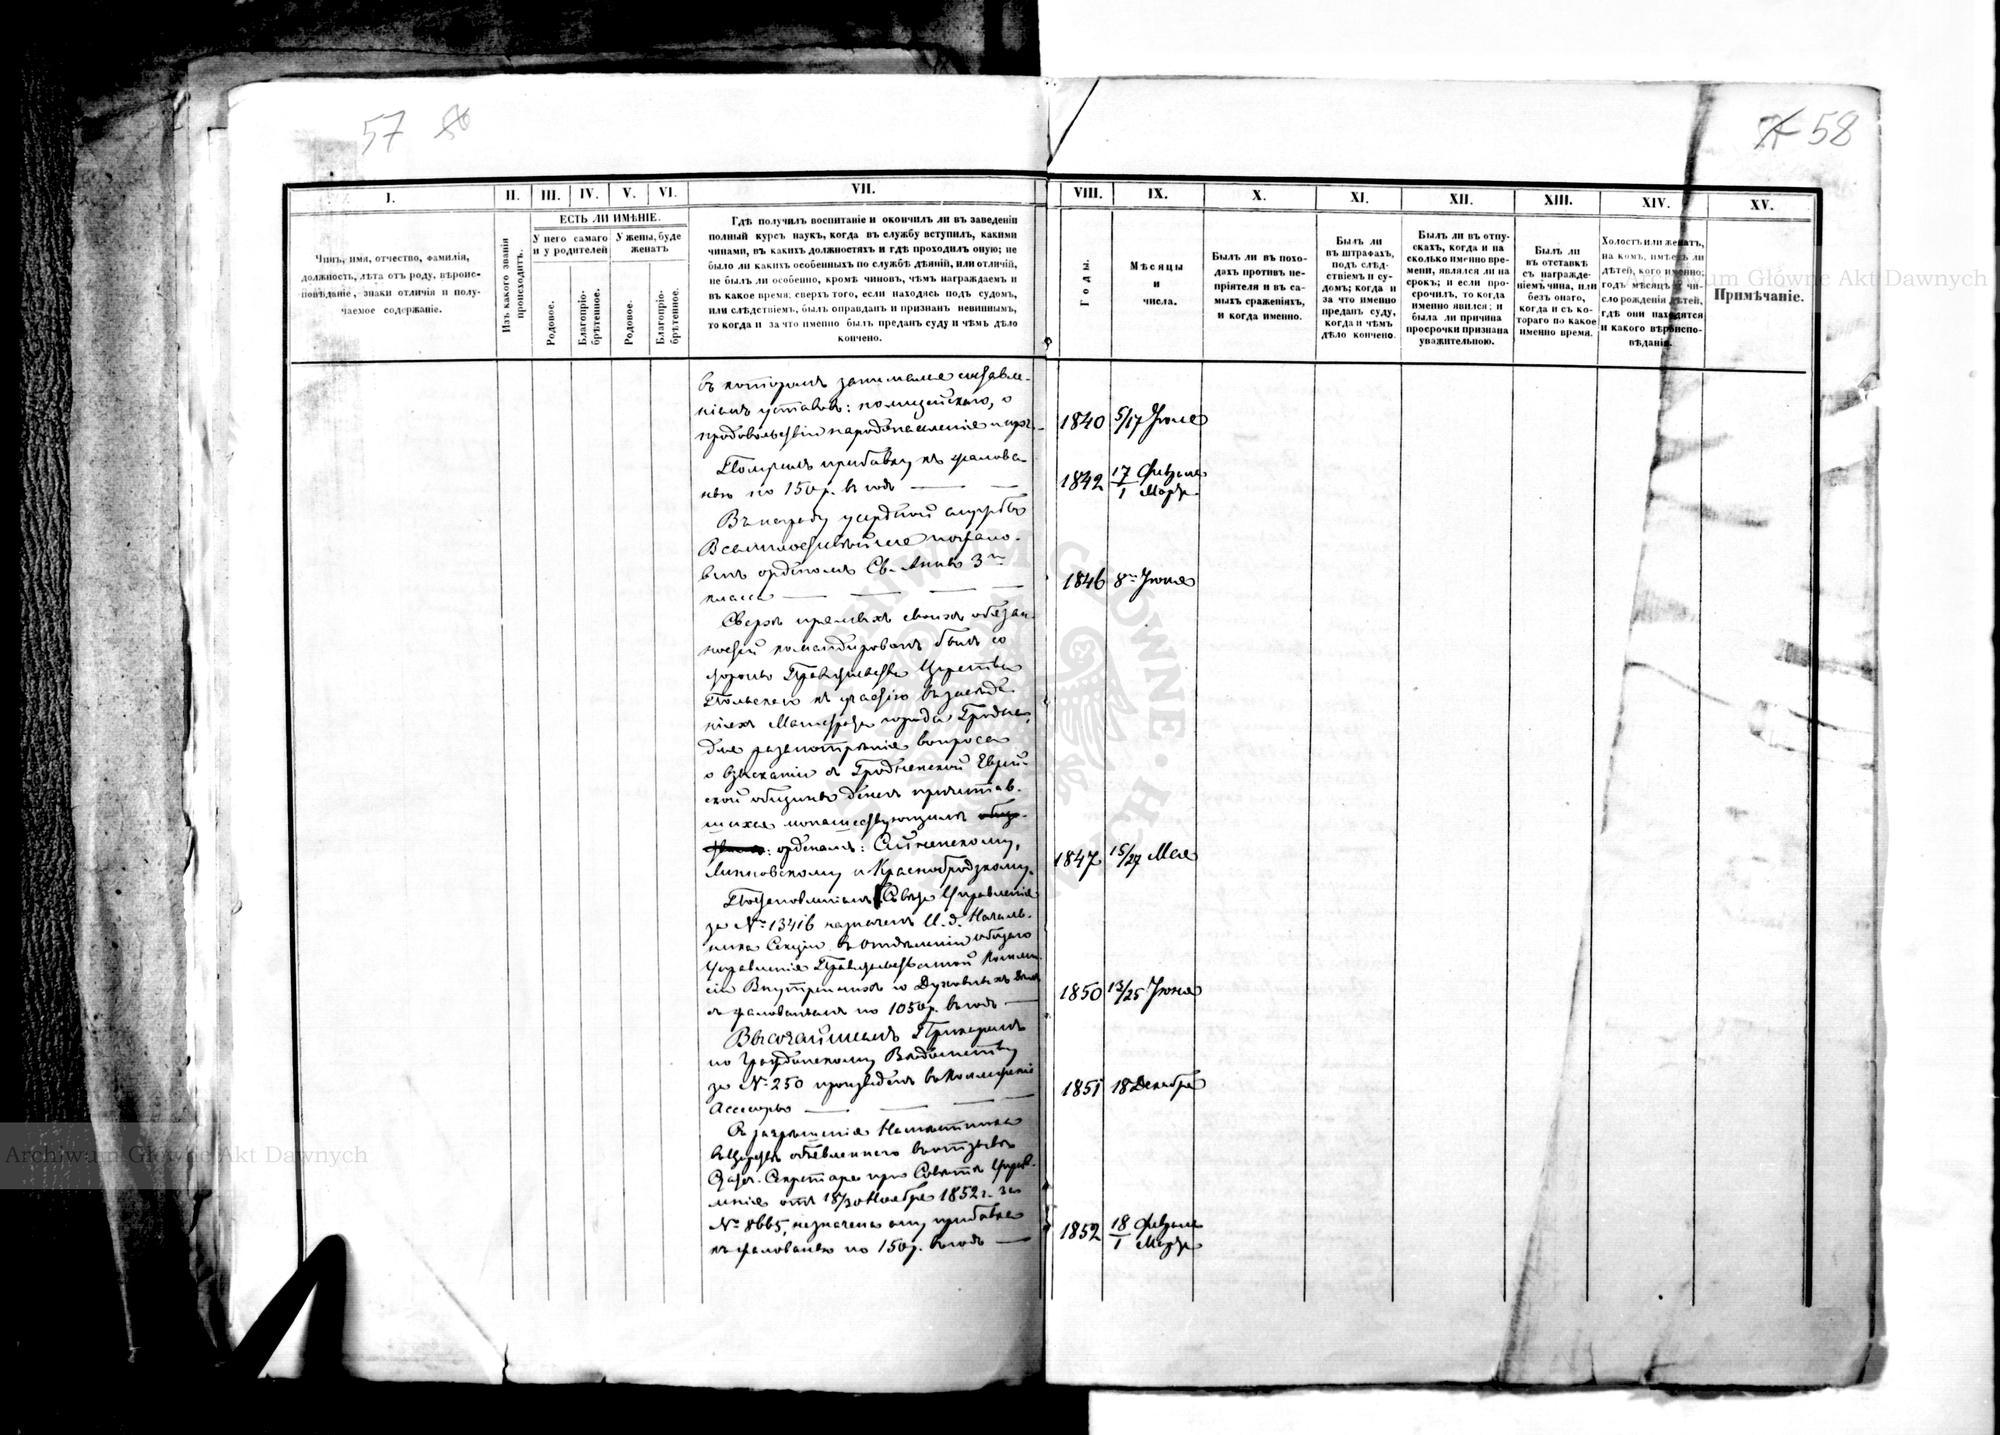 57
58
I.
II.
III.
IV.
V.
VI.
VII.
VIII.
IX.
X.
XI.
XII.
XIII.
XIV.
XV.
Чинъ, имя, отчество, фамилія,
должность, лѣта отъ роду, вѣроис-
повѣданіе, знаки отличія и полу-
чаемое содержаніе.
Изъ какого званія
происходитъ.
ЕСТЬ ЛИ ИМѢНІЕ.
У него самаго
и у родителей
У жены, буде
женатъ
Родовое.
Благопріо-
брѣтенное.
Родовое.
Благопріо-
брѣтенное.
Гдѣ получилъ воспитаніе и окончилъ ли въ заведеніи
полный курсъ наукъ, когда въ службу вступилъ, какими
чинами, въ какихъ должностяхъ и гдѣ проходилъ оную; не
было ли какихъ особенныхъ по службѣ дѣяній, или отличій,
не былъ ли особенно, кромѣ чиновъ, чѣмъ награждаемъ и
въ какое время; сверхъ того, если находясь подъ судомъ,
или слѣдствіемъ, былъ оправданъ и признанъ невиннымъ,
то когда и за что именно былъ преданъ суду и чѣмъ дѣло
кончено.
Годы.
Мѣсяцы
и
числа.
Былъ ли въ похо-
дахъ противъ не-
пріятеля и въ са-
мыхъ сраженіяхъ,
и когда именно.
Былъ ли
въ штрафахъ,
подъ слѣд-
ствіемъ и су-
домъ; когда и
за что именно
преданъ суду,
когда и чѣмъ
дѣло кончено.
Былъ ли въ отпу-
скахъ, когда и на
сколько именно вре-
мени, являлся ли на
срокъ; и если про-
срочилъ, то когда
именно явился; и
была ли причина
просрочки признана
уважительною.
Былъ ли
въ отставкѣ
съ награжде-
ніемъ чина, или
безъ онаго,
когда и съ ко-
тораго по какое
именно время.
Холостъ или женатъ,
на комъ, имѣетъ ли
дѣтей, кого именно;
годъ мѣсяцъ и чи-
сло рожденія дѣтей,
гдѣ они находятся
и какого вѣроиспо-
вѣданія.
Примѣчаніе.
въ которомъ занимался составле-
ніемъ уставовъ: полицейскаго, о
продовольствіи народонаселенія и проч.
1840 5/17 Іюля
Получилъ прибавку къ жалова-
нью по 150 р. въ годъ
1842 17 Февраля
1 Марта
Въ награду усердной службы
Всемилостивѣйше пожало-
ванъ орденомъ Св. Анны 3й
класса
1846 8го Іюня
Сверхъ прямыхъ своихъ обязан-
ностей командированъ былъ со
стороны Правительства Царства
Польскаго къ участію въ засѣда-
ніяхъ Магистрата города Гродна,
для разсмотрѣнія вопроса
о взысканіи съ Гродненской Еврей-
ской общины денегъ причитав-
шихся монашествующимъ
орденамъ: Сейненскому,
Линковскому и Краснобродзкому.
1847 15/27 Мая
Постановленіемъ Совѣта Управленія
за № 13416 назначенъ И. д. Началь-
ника Секціи въ Отдѣленіи общаго
Управленія Правительственной Коммис-
сіи Внутреннихъ и Духовныхъ дѣлъ
съ жалованьемъ по 1050 р. въ годъ
1850 13/25 Іюня
Высочайшимъ Приказомъ
по Гражданскому Вѣдомству
за № 250 произведенъ въ Коллежскіе
Ассесоры
1851 18 Декабря
Съ разрѣшенія Намѣстника
въ Царствѣ объявленнаго въ отзывѣ
Статс-Секретаря при Совѣтѣ Управ-
ленія отъ 18/30 Ноября 1852 г. за
№ 8665, назначена ему прибавка
къ жалованью по 150 р. въ годъ
1852 18 Февраля
1 Марта
Archiwum Główne Akt Dawnych
Archiwum Główne Akt Dawnych